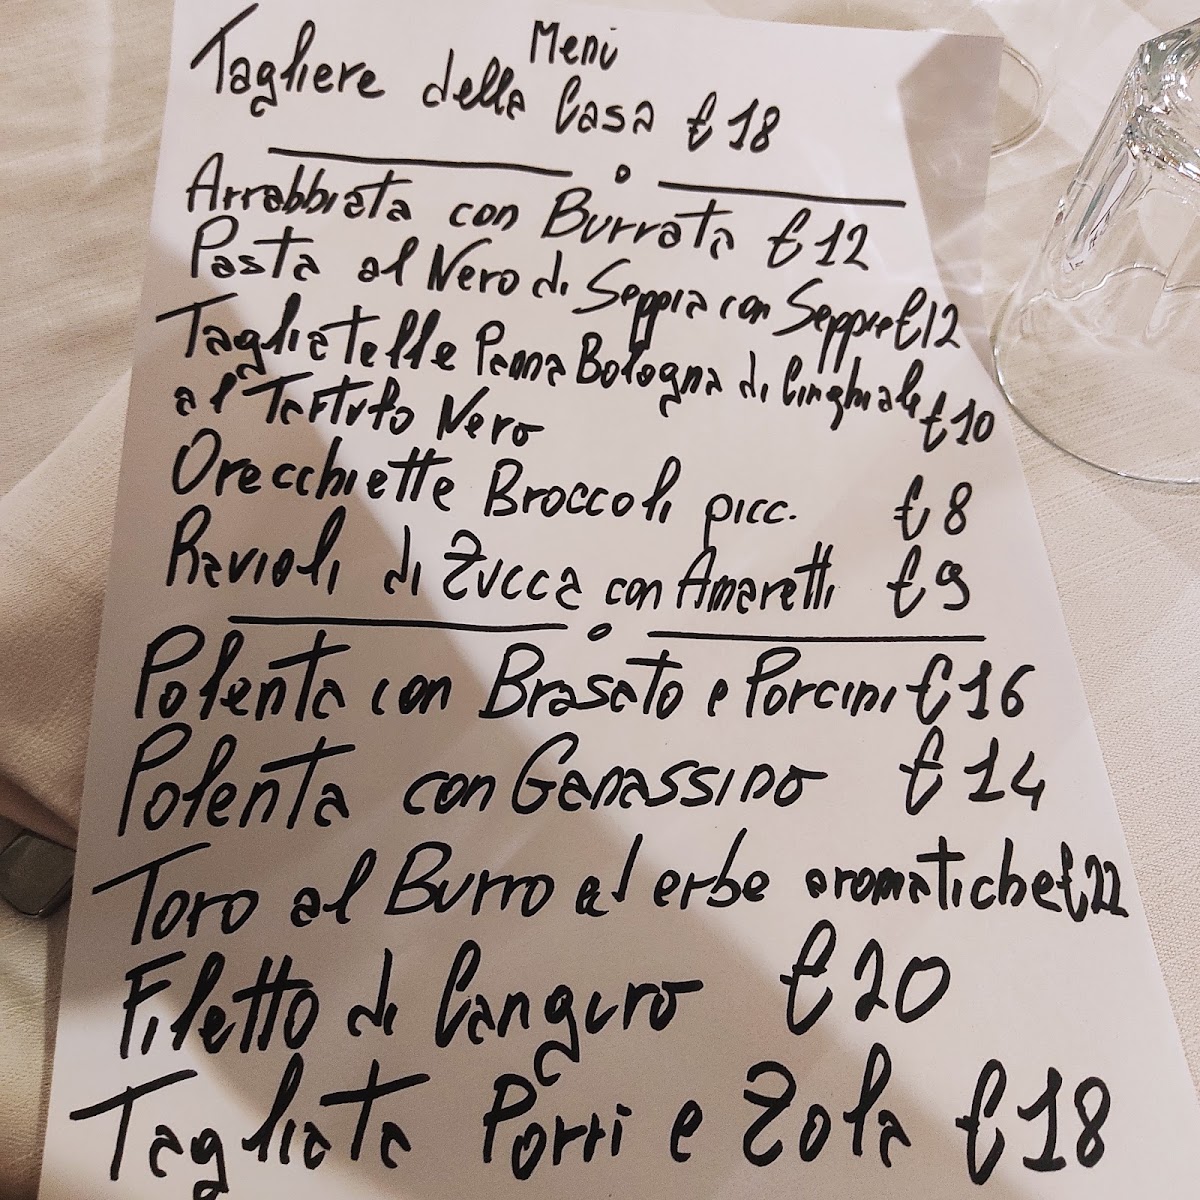 Menù
Tagliere della Casa € 18
Arrabbiata con Burrata € 12
Pasta al Nero di Seppia con Seppie € 12
Tagliatelle Panna Bologna di Cinghiale € 10
al Tartufo Nero
Orecchiette Broccoli picc. € 8
Ravioli di Zucca con Amaretti € 9
Polenta con Brasato e Porcini € 16
Polenta con Ganassino € 14
Toro al Burro ed erbe aromatiche € 22
Filetto di Canguro € 20
Tagliata Porri e Zola € 18